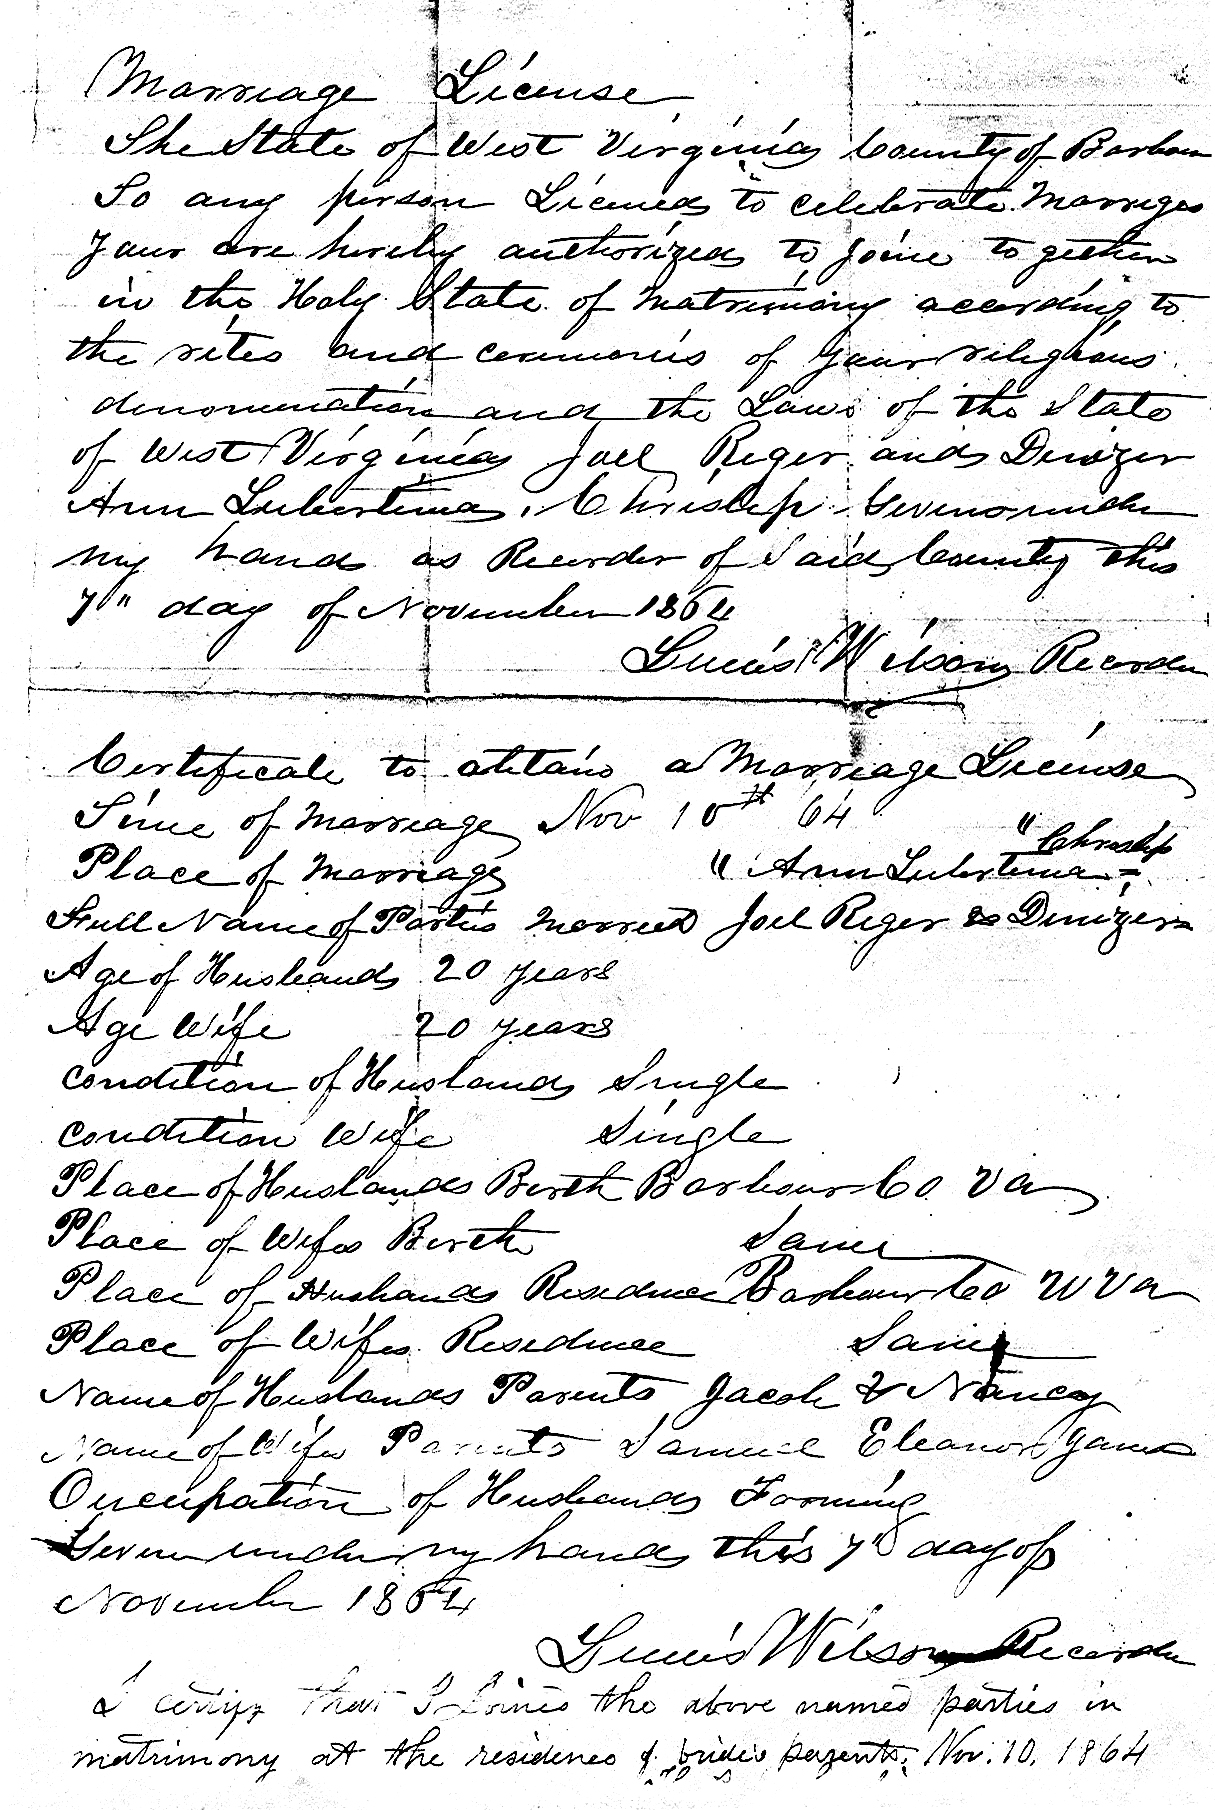 Marriage License
The State of West Virginia County of Barbour
To any person Licened to celebrate Marriges
your are hereby authorized to joine to gether
in the Holy State of Matrimony according to
the rites and ceremonies of your religious
denomination and the Laws of the State
of West Virginia Joel Reger and Denizer
Ann Lubertima Chrislip Given under
my hand as Recorder of Said County this
7" day of November 1864
Lewis Wilson Recorder
Certificate to obtain a Marriage License
Time of Marriage Nov 10th 64
" Chrislip
Place of Marriage " Ann Lubertima =
Full Name of Parties Married Joel Reger & Denizer =
Age of Husband 20 years
Age Wife 20 years
Condition of Husbands Single
Condition Wife Single
Place of Husbands Birth Barbour Co Va
Place of Wifes Birth Same
Place of Husbands Residence Barbour Co W Va
Place of Wifes Residence Same
Name of Husbands Parents Jacob & Nancy
Name of Wifes Parents Samuel Eleanor Jane
Occupation of Husbands Farming
Given under my hand this 7th day of
November 1864
Lewis Wilson Recorder
I certify that I joined the above named parties in
matrimony at the residence of bride's parents, Nov. 10, 1864